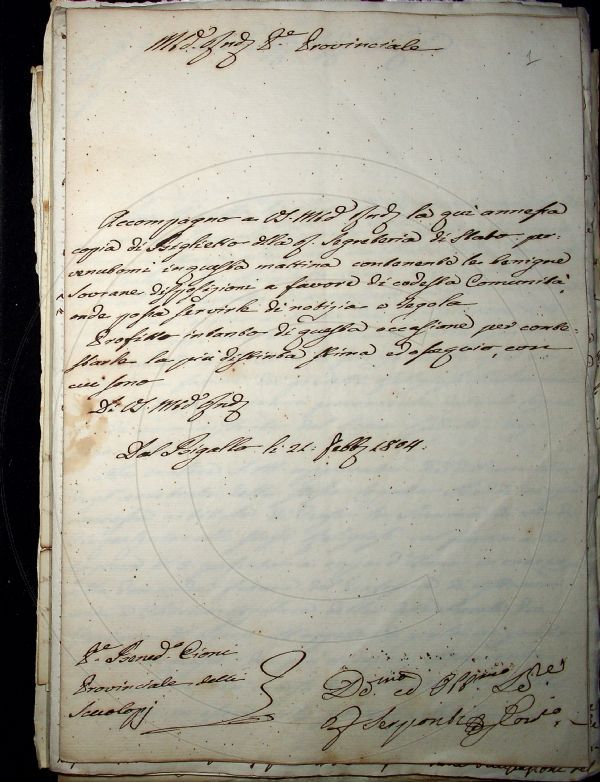 M.to Rnd. P.e Provinciale
1
Accompagno a VS. M.to Rnd. la qui annessa
copia di Biglietto della R. Segreteria di Stato per-
venutomi in questa mattina contenente le benigne
sovrane disposizioni a favore di codesta Comunità,
onde possa servirle di notizia e regola
Profitto intanto di questa occasione per conte-
starle la più distinta stima ed ossequio, con
cui sono
Di VS. M.to Rnd.
Dal Bigallo li 21. Febb. 1804.
P.e Bened.o Cioni
Provinciale delle
Scuolepj
De.mo ed Obb.mo Se.re